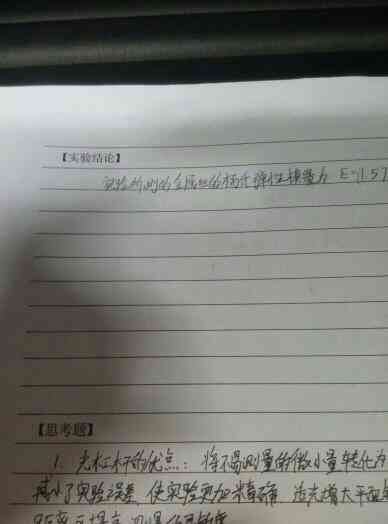 【实验结论】
实验所测的金属丝的杨氏弹性模量为 E=1.57
【思考题】
1. 光杠杆的优点：将不易测量的微小量转化为
减小了实验误差 使实验更加精确 适光增大平面镜
距离可提高